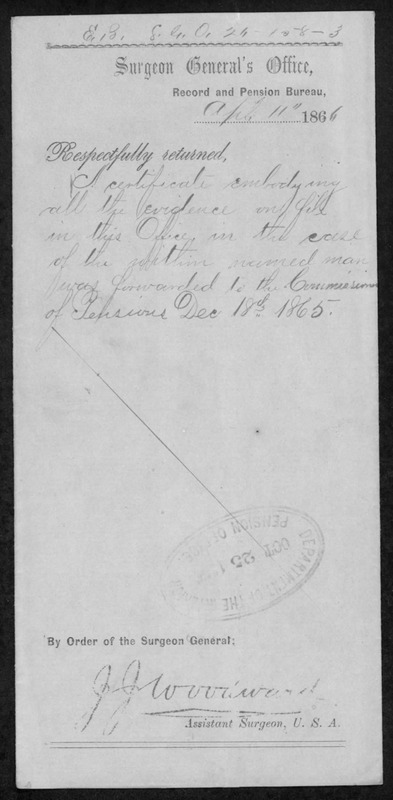 E.B. S.G.O. 24-158-3
Surgeon General's Office,
Record and Pension Bureau,
Apl 11th 1866
Respectfully returned,
A certificate embodying
all the evidence on file
in this Office, in the case
of the within named man
was forwarded to the Commissioner
of Pensions Dec 18th 1865.
PENSION OFFICE
OCT 25
DEPARTMENT OF THE
By Order of the Surgeon General:
J J Woodward
Assistant Surgeon, U. S. A.